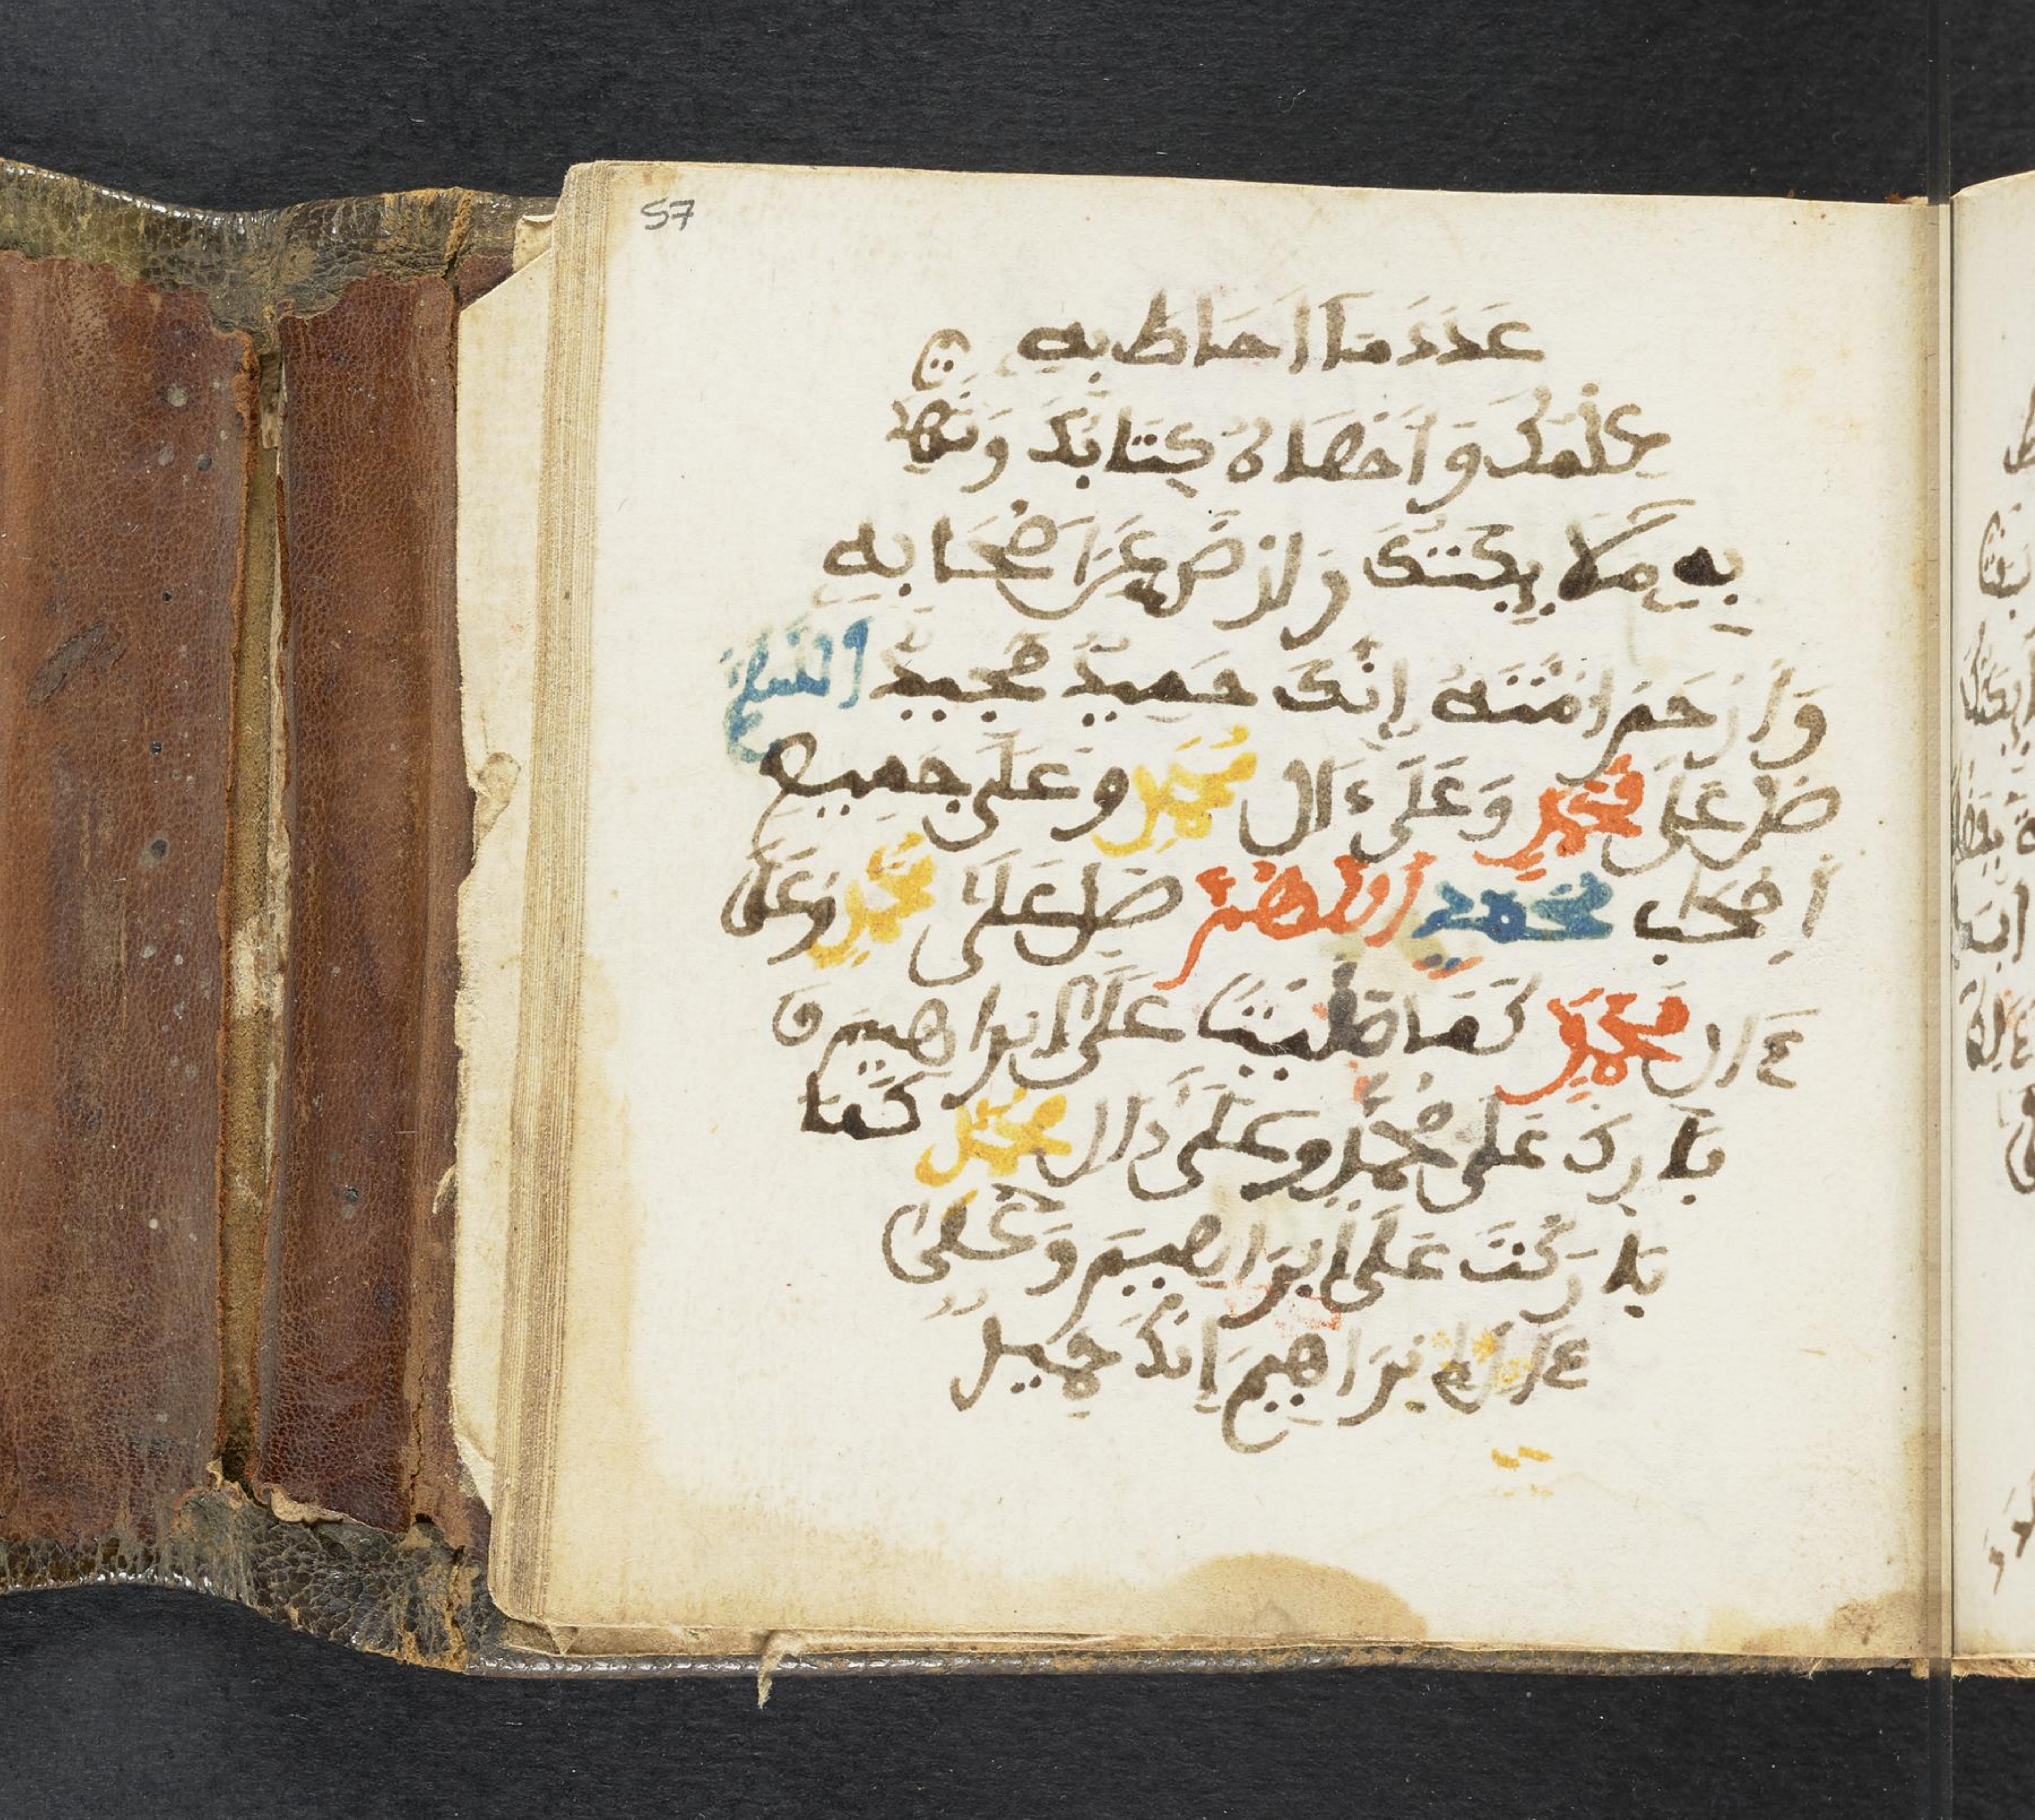 57
عَدَدَ مَا اَحَاطَ بِهِ
عِلْمُكَ وَاَحْصَاهُ كِتَابُكَ وَشَهِدَتْ
بِهِ مَلَائِكَتُكَ وَارْضَ عَنَ اَصْحَابِهِ
وَارْحَمُ اُمَّتَهُ اِنَّكَ حَمِيدٌ مَجِيدٌ اللَّهُمَّ
صَلِّ عَلَى مُحَمَّدٍ وَعَلَى ءَالِ مُحَمَّدٍ وَعَلَى جَمِيعِ
اَصْحَابِ مُحَمَّدٍ اَللَّهُمَّ صَلِّ عَلَى مُحَمَّدٍ وَعَلَى
ءَالِ مُحَمَّدٍ كَمَا صَلَّيْتَ عَلَى اِبْرَاهِيمَ وَ
بَارِكْ عَلَى مُحَمَّدٍ وَعَلَى ءَالِ مُحَمَّدٍ كَمَا
بَارَكْتَ عَلَى اِبْرَاهِيمَ وَعَلَى
ءَالِ اِبْرَاهِيمَ اِنَّكَ حَمِيدٌ